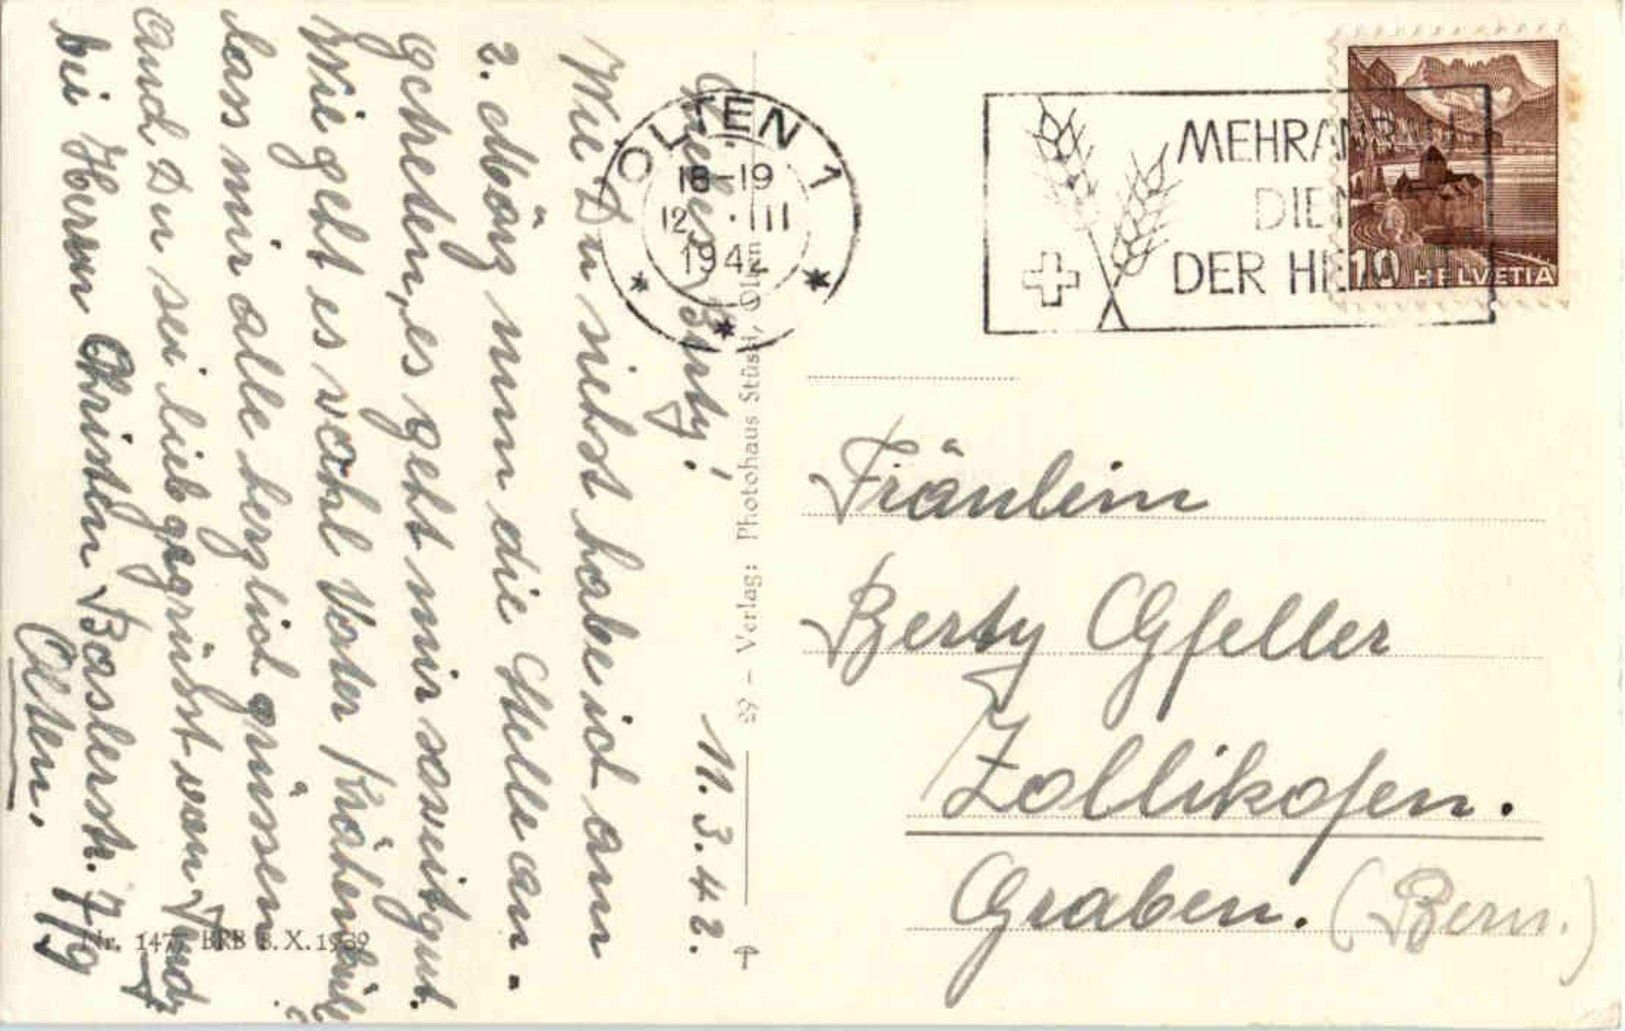 Lieber Berty!
11.3.42.
Wie Du siehst habe ich am
2. März nun die Stelle an-
getreten, es geht mir soweit gut.
Wie geht es wohl Vater Krähenbühl?
Lass mir alle herzlich grüssen
und Du sei lieb gegrüsst von
bei Herrn Christen Baslerstr. 7/9
Olten.
29 - Verlag: Photohaus Stüssi, Olten
Nr. 1477 BRB 3.X.1939
OLTEN 1
18-19
12. III
194
MEHRAN
DIEN
DER HE
10 HELVETIA
Fräulein
Berty Gfeller
Zollikofen.
Graben. (Bern.)